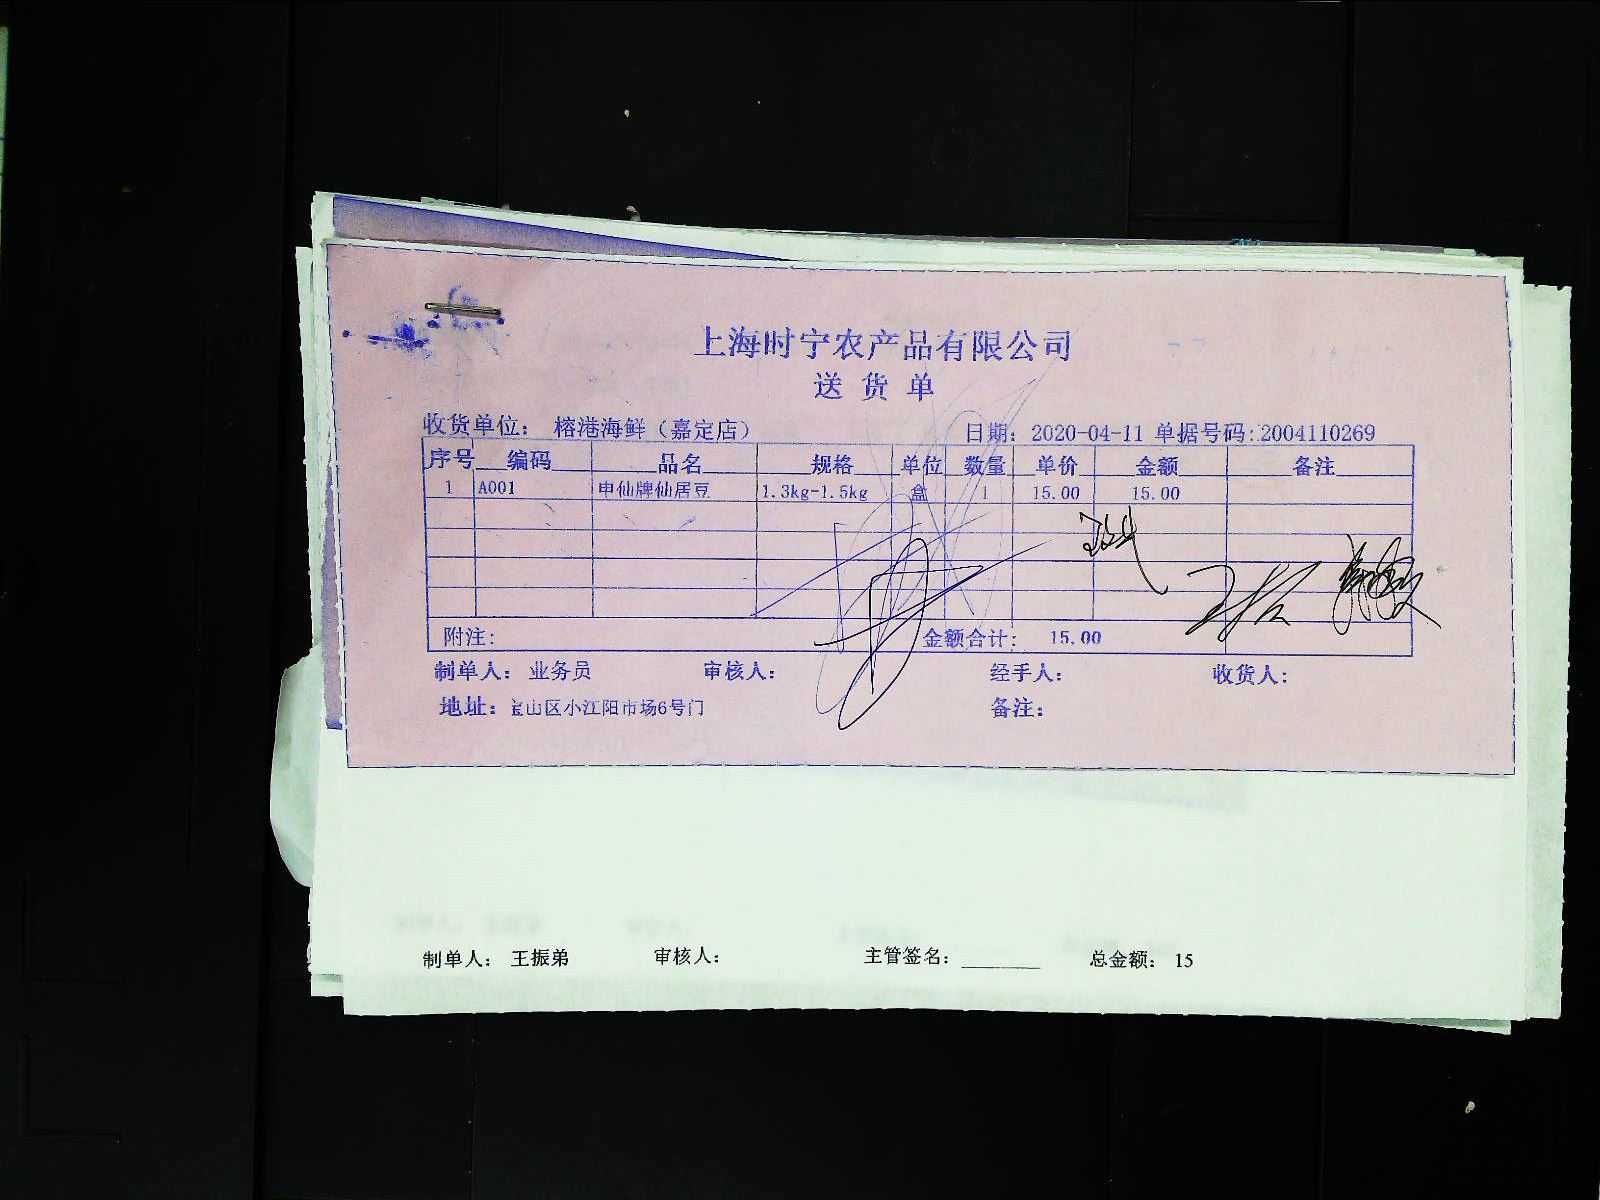 上海时宁农产品有限公司
送货单
收货单位： 榕港海鲜（嘉定店） 日期： 2020-04-11 单据号码:2004110269
序号 编码 品名 规格 单位 数量 单价 金额 备注
1 A001 申仙牌仙居豆 1.3kg-1.5kg 盒 1 15.00 15.00
附注: 金额合计: 15.00
制单人： 业务员 审核人： 经手人： 收货人:
地址： 宝山区小江阳市场6号门 备注：
制单人： 王振弟 审核人： 主管签名：________ 总金额： 15